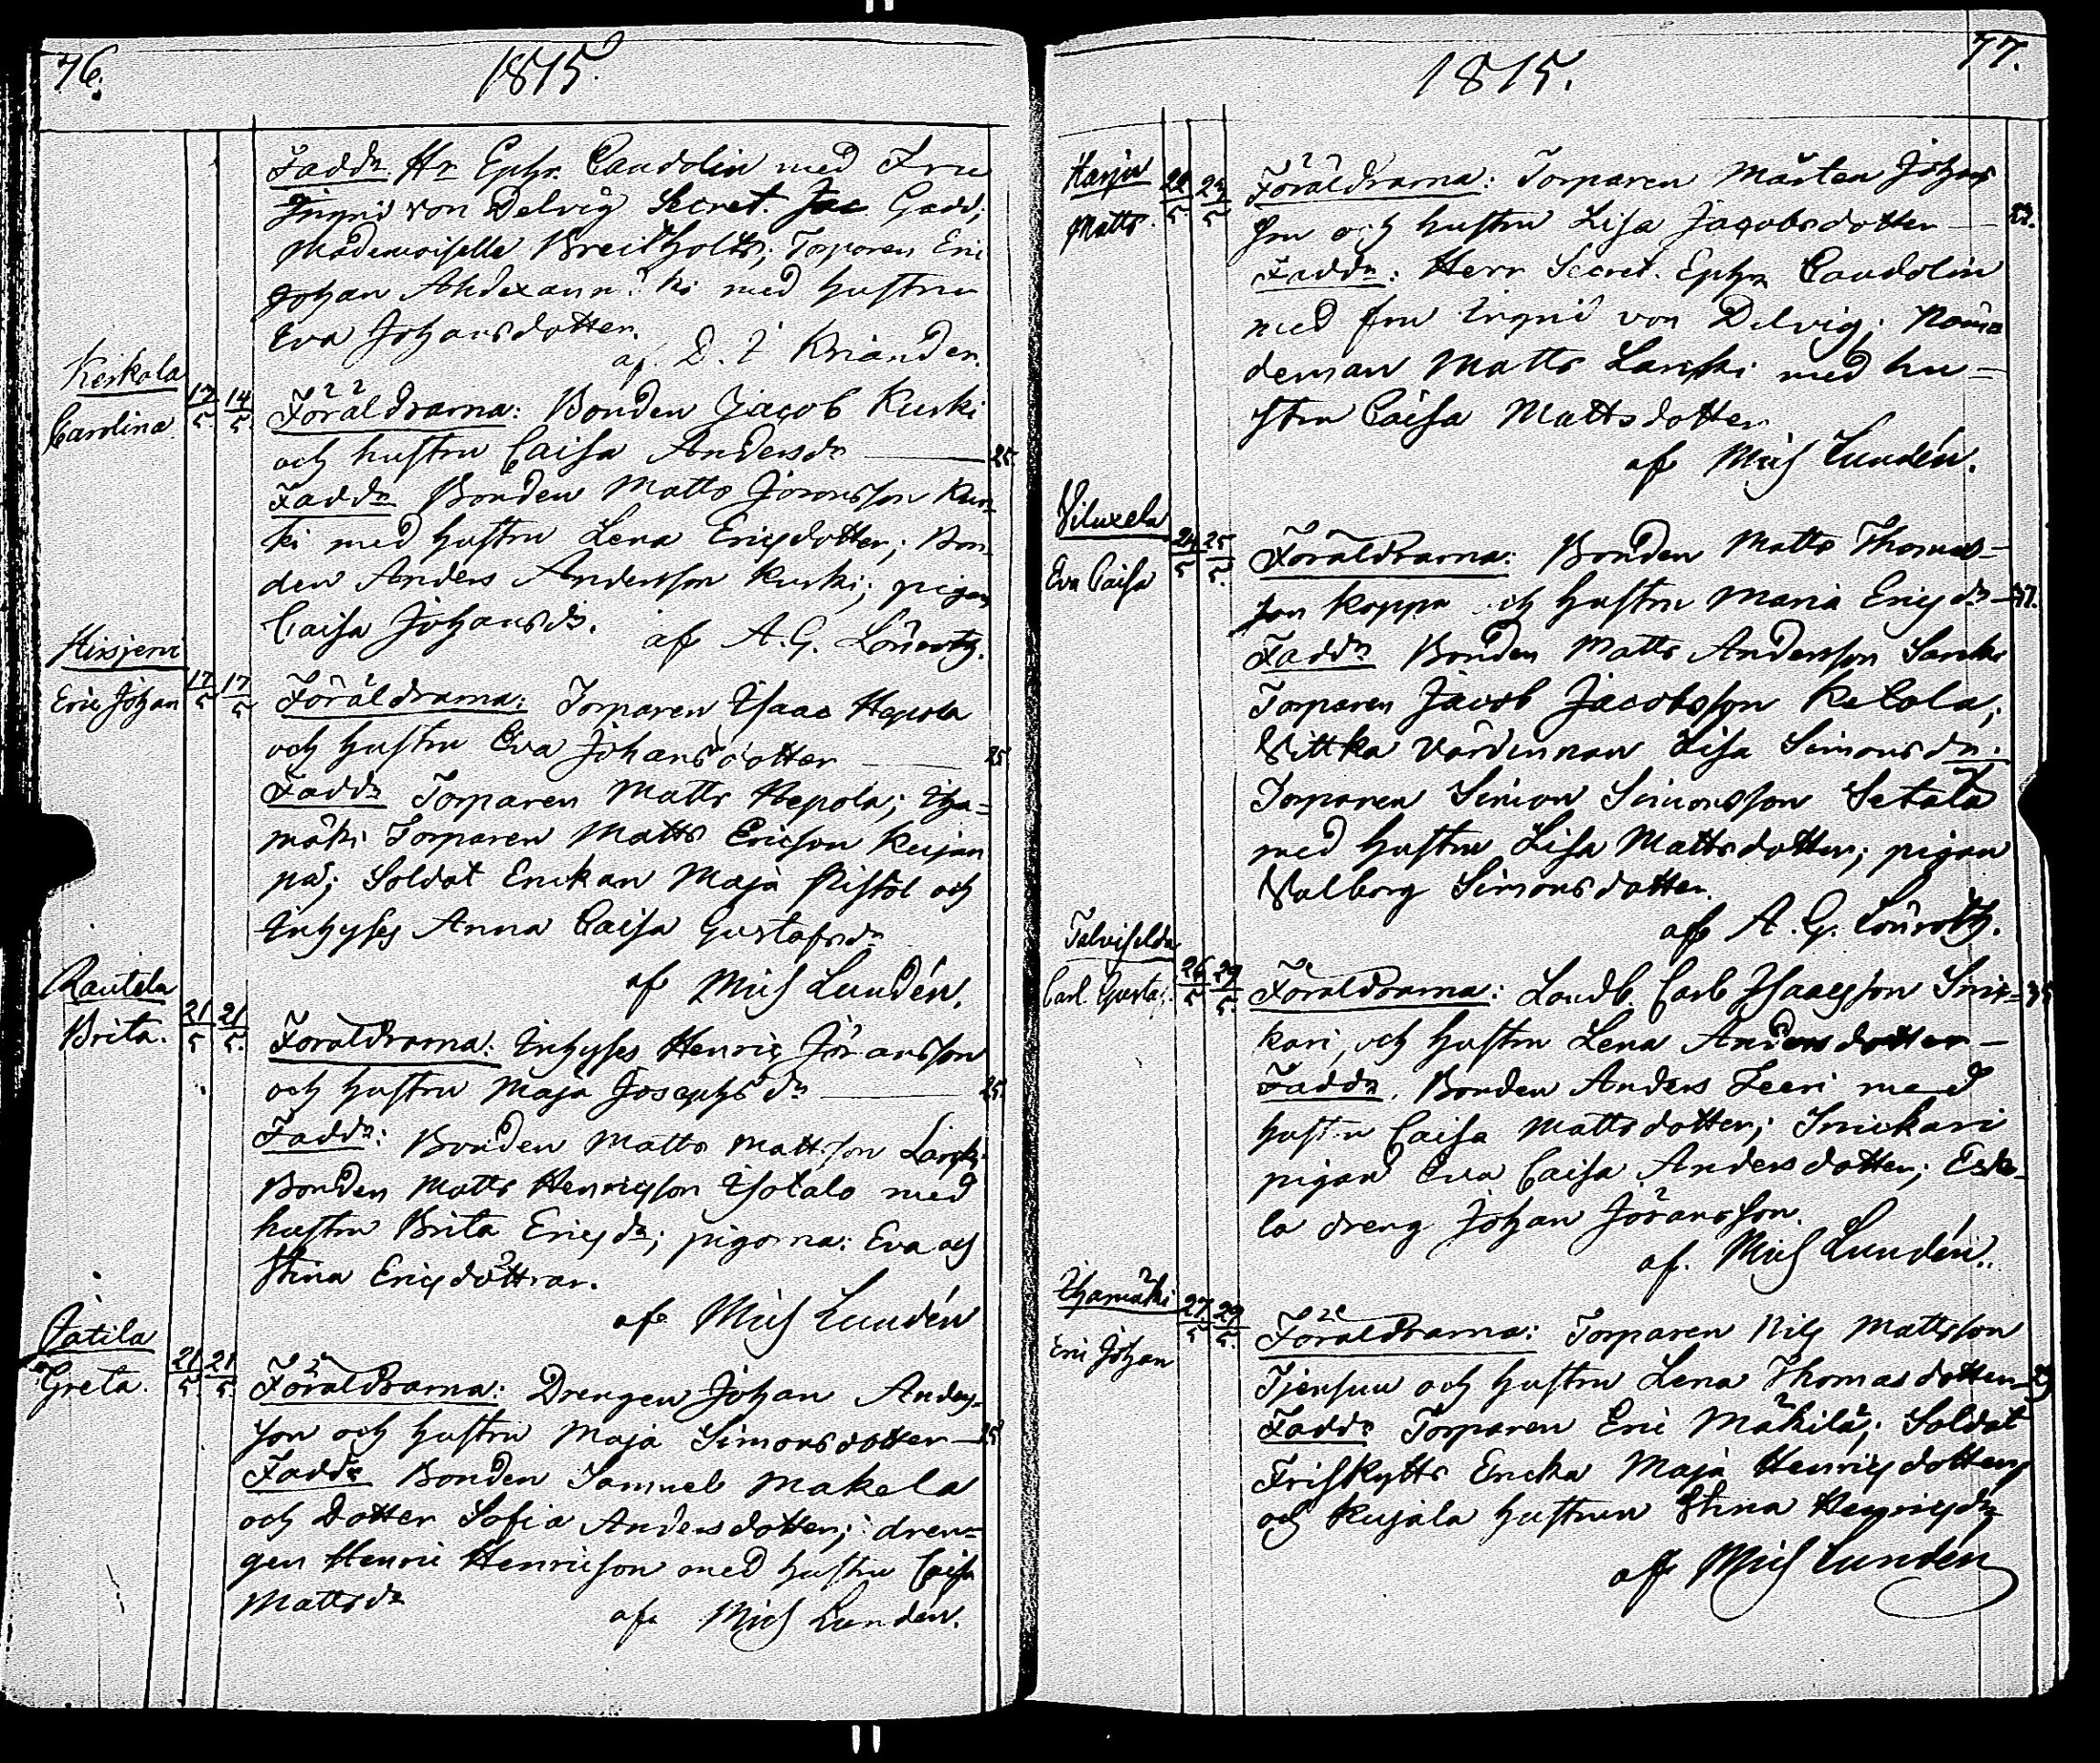 76.
1815.
Fadd:r Hr Ephr. Caudolin med Fru
Ingrid von Delvig Secret. Jac Gadd;
Mademoiselle Breitholtz; Torparen Eric
Johan med hustru
Eva Johansdotter.
af. D. Kriander.
Keskola
Carolina
12/5 14/5
Föräldrarna: Bonden Jacob Kurki
och hustru Caisa Andersdr — 25.
Faddr Bonden Matts Joransson Kur-
ki med hustru Lena Ericsdotter; Bon-
den Anders Andersson Kurki; pigan
Caisa Johansdr. af A. G. Lönroth.
Hirsjervi
Eric Johan
17/5 17/5
Föräldrarna: Torparen Isaac Hepola
och hustru Eva Johansdotter — 25
Faddr Torparen Matts Hepola; Iha-
mäki Torparen Matts Ericson Kujan
pä; Soldat Enckan Maja Pistol och
Inhyses Anna Caisa Gustafsdr
af Mich Lundén.
Rautela
Brita.
21/5 21/5
Föräldrarna: Inhyses Henric Jöransson
och hustru Maja Josephsdr — 25.
Faddr: Bonden Matts Mattsson
Bonden Matts Henricsson Isotalo med
hustru Brita Ericsdr; pigorna: Eva och
Stina Ericsdöttrar.
af Mich Lundén
Jatila
Greta.
21/5 21/5
Föräldrarna: Drengen Johan Anders-
son och hustru Maja Simonsdotter — 25
Faddr Bonden Samuel Makela
och Dotter Sofia Andersdotter; dren-
gen Henric Henricson med hustru Caisa
Mattsdr af Mich Lundén.
77.
1815.
Harju
Matts.
Föräldrarna: Torparen Mårten Johans
son och hustru Lisa Jacobsdotter —
Faddr: Herr Secret. Ephr Caudolin
med fru Ingrid von Delvig; Näm-
deman Matts Lanski med hu-
stru Caisa Mattsdotter
af Mich Lundén.
Viluxela
Eva Caisa
24/5 25/5.
Föräldrarna: Bonden Matts Thomas-
son Koppa och hustru Maria Ericsdr — 37.
Faddr Bonden Matts Andersson
Torparen Jacob Jacobsson Ketola;
Vittka Värdinnan Lisa Simonsdr.
Torparen Simon Simonsson Setälä
med hustru Lisa Mattsdotter; pigan
Valborg Simonsdotter.
af A. G. Lönroth.
Talvisilda
Carl Gustaf.
26/5 29/5.
Föräldrarna: Landb. Carl Isaacsson Snic-
kari, och hustru Lena Andersdotter —
Faddr. Bonden Anders Leeri med
hustru Caisa Mattsdotter; Snickari
pigan Eva Caisa Andersdotter; Eske-
la dreng Johan Jöransson.
af. Mich Lundén.
Ihamäki
Eric Johan
27/5 29/5.
Föräldrarna: Torparen Nils Mattsson
och hustru Lena Thomasdotter — 29
Faddr Torparen Eric Mäkilä; Soldat
Friskytts Encka Maja Henricsdotter,
och Kujala hustrun Stina Henricsdr
af Mich Lundén